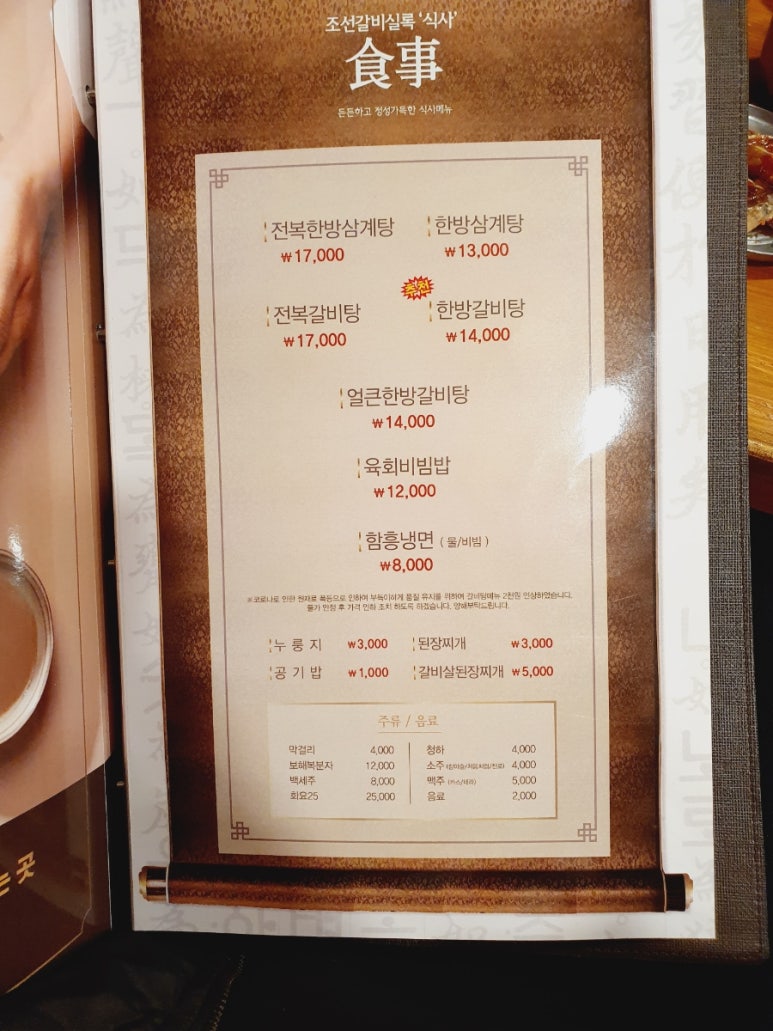 조선갈비실록 '식사'
食事
든든하고 정성가득한 식사메뉴
전복한방삼계탕 한방삼계탕
₩17,000 ₩13,000
추천
전복갈비탕 한방갈비탕
₩17,000 ₩14,000
얼큰한방갈비탕
₩14,000
육회비빔밥
₩12,000
함흥냉면 ( 물/비빔 )
₩8,000
※코로나로 인한 원재료 폭등으로 인하여 부득이하게 품질 유지를 위하여 갈비탕메뉴 2천원 인상하였습니다.
물가 안정 후 가격 인하 조치 하도록 하겠습니다. 양해부탁드립니다.
누룽지 ₩3,000 된장찌개 ₩3,000
공기밥 ₩1,000 갈비살된장찌개 ₩5,000
주류 / 음료
막걸리 4,000 청하 4,000
보해복분자 12,000 소주 4,000
백세주 8,000 맥주 (카스/테라) 5,000
화요25 25,000 음료 2,000
는 곳